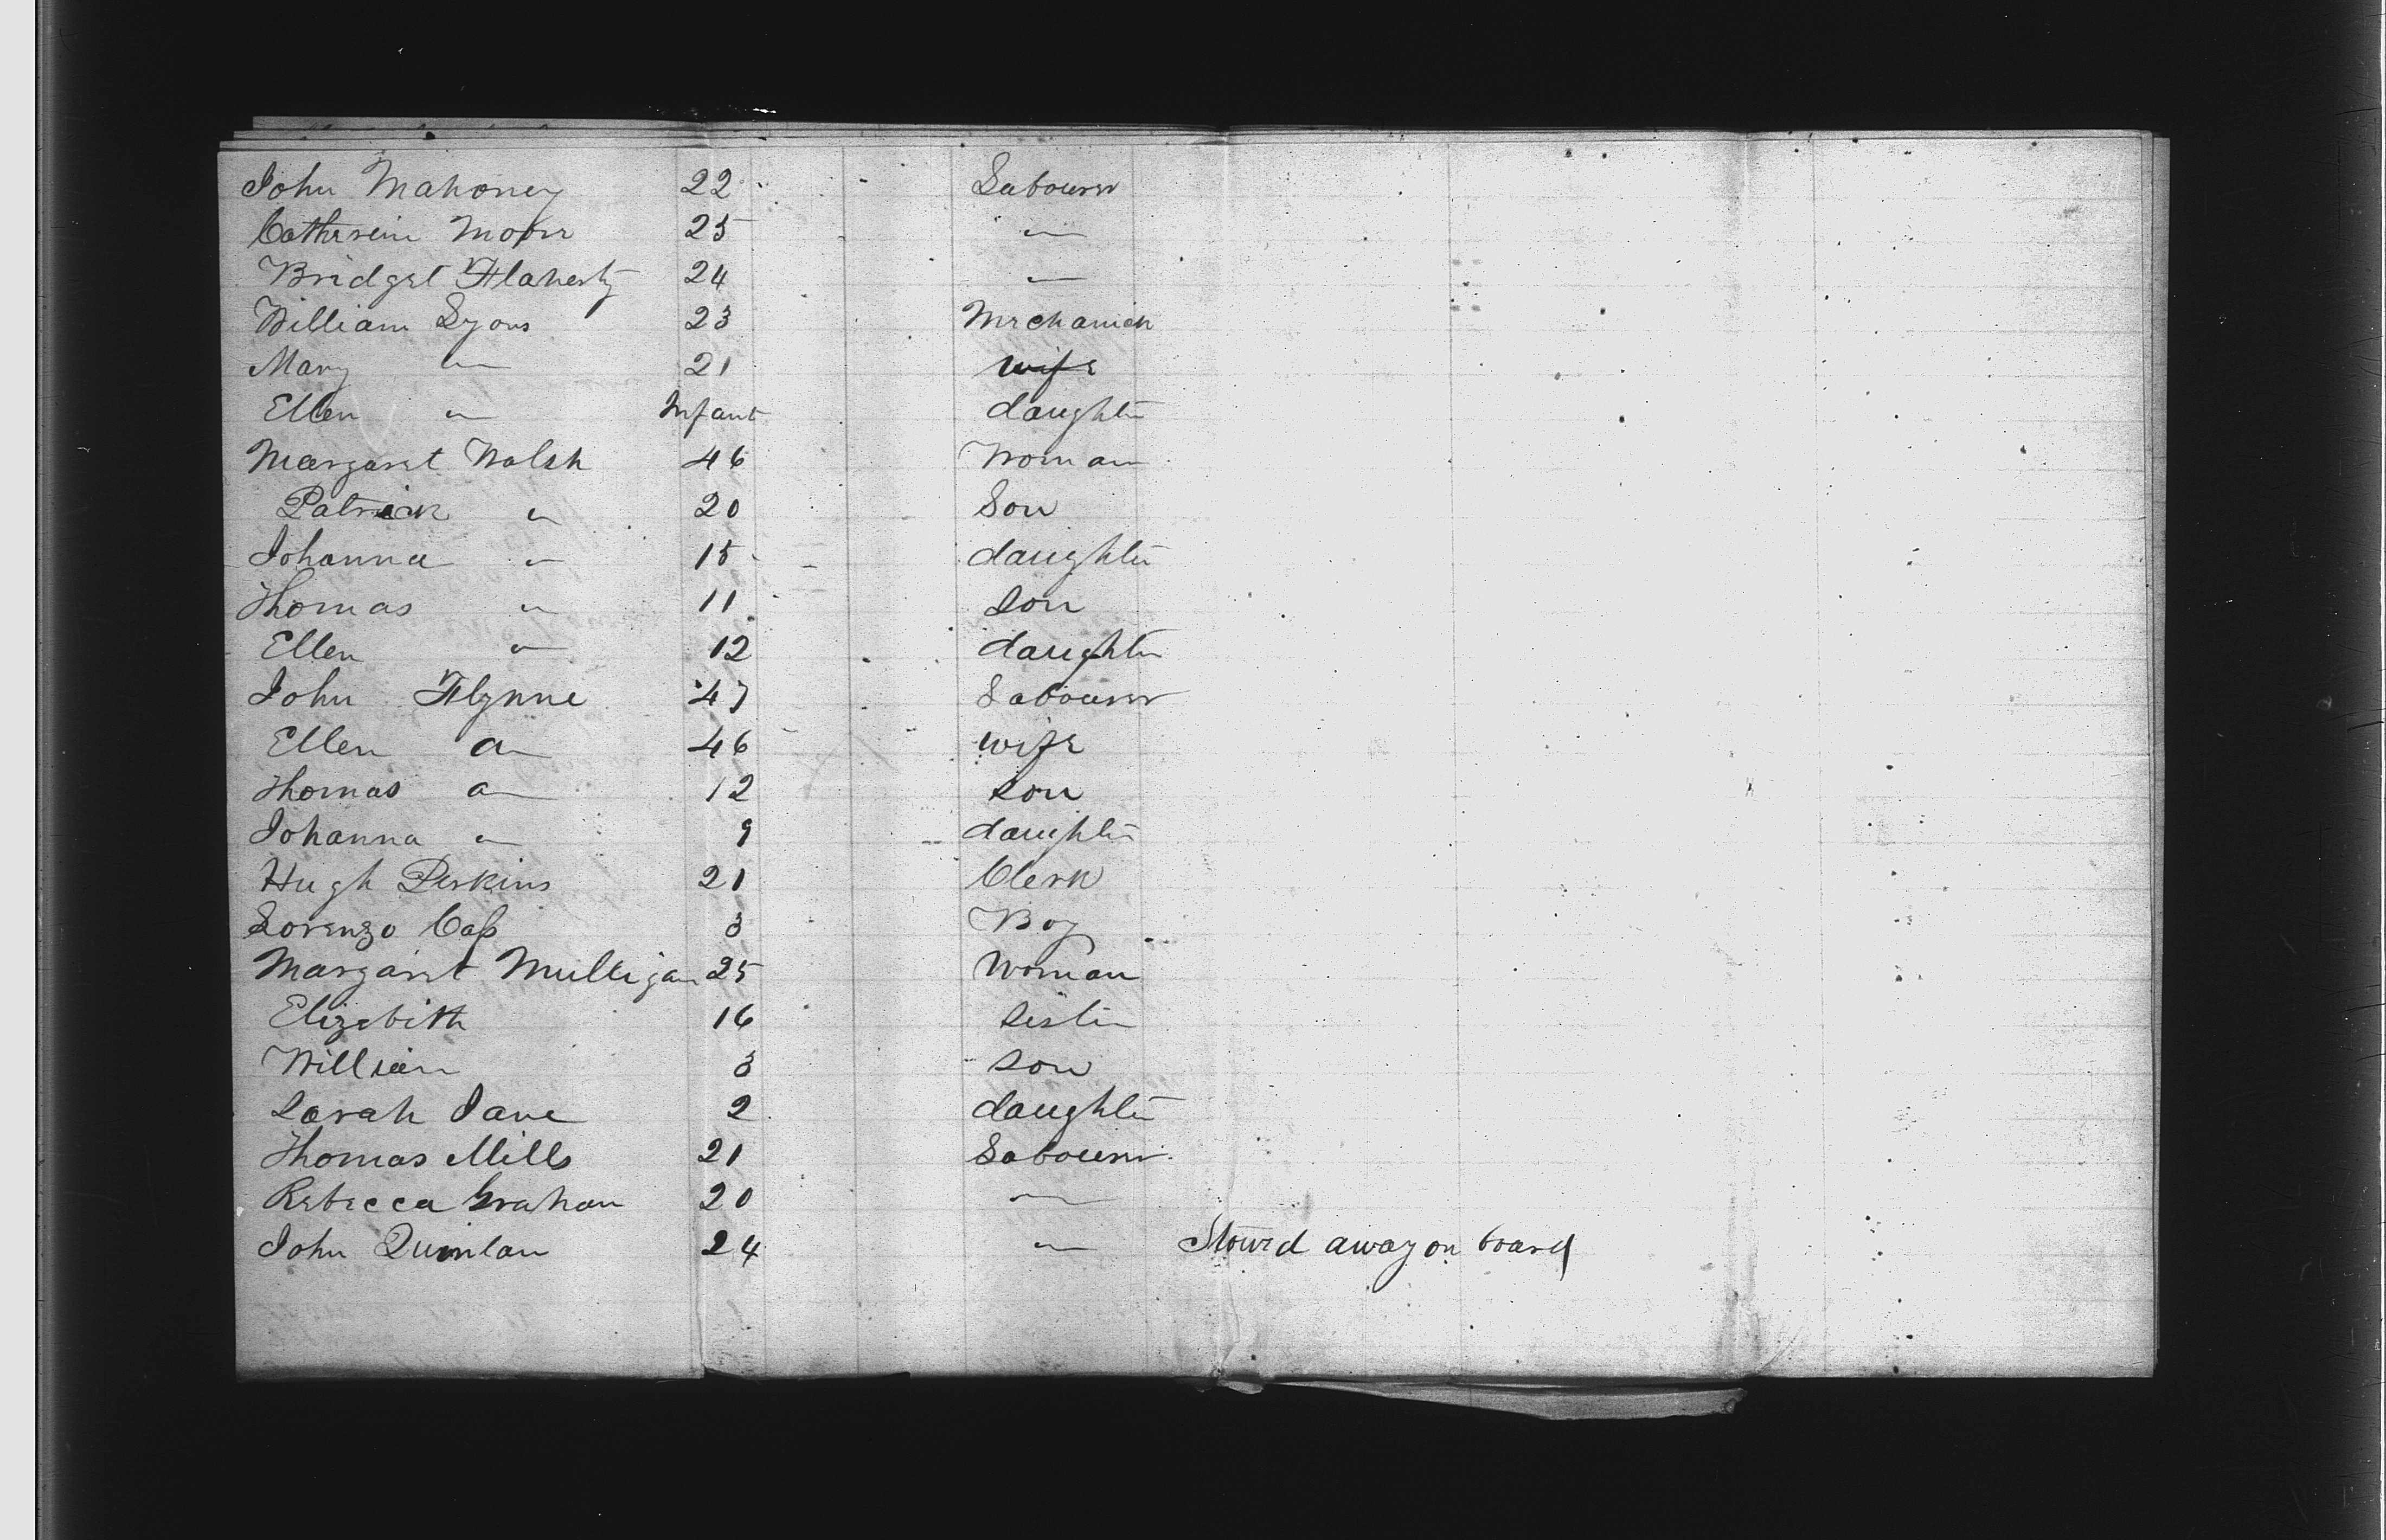 John Mahoney 22 Labourer
Catherine Moore 25 "
Bridget Flaherty 24 "
William Lyons 23 Mechanick
Mary " 21 wife
Ellen " Infant daughter
Margaret Walsh 46 Woman
Patrick " 20 Son
Johanna " 15 daughter
Thomas " 11 son
Ellen " 12 daughter
John Flynne 47 Labourer
Ellen " 46 wife
Thomas " 12 son
Johanna " 9 daughter
Hugh Perkins 21 Clerk
Lorenzo Cass 3 Boy
Margaret Mulligan 25 Woman
Elizebeth 16 sister
William 3 son
Sarah Jane 2 daughter
Thomas Mills 21 Labourer
Rebecca Graham 20 "
John Quinlan 24 " Stowed away on board